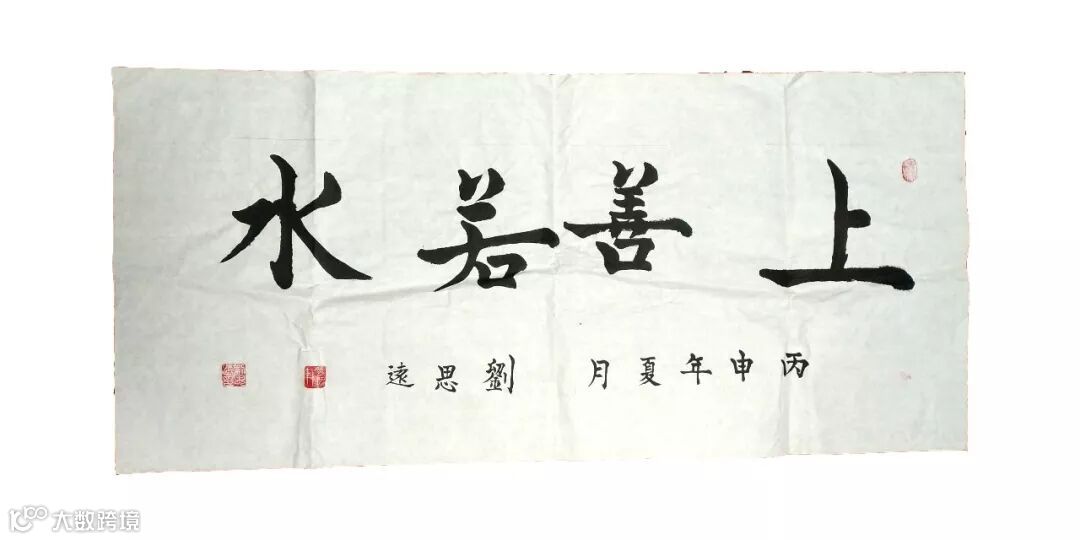 上善若水
丙申年夏月 劉思遠
大数跨境